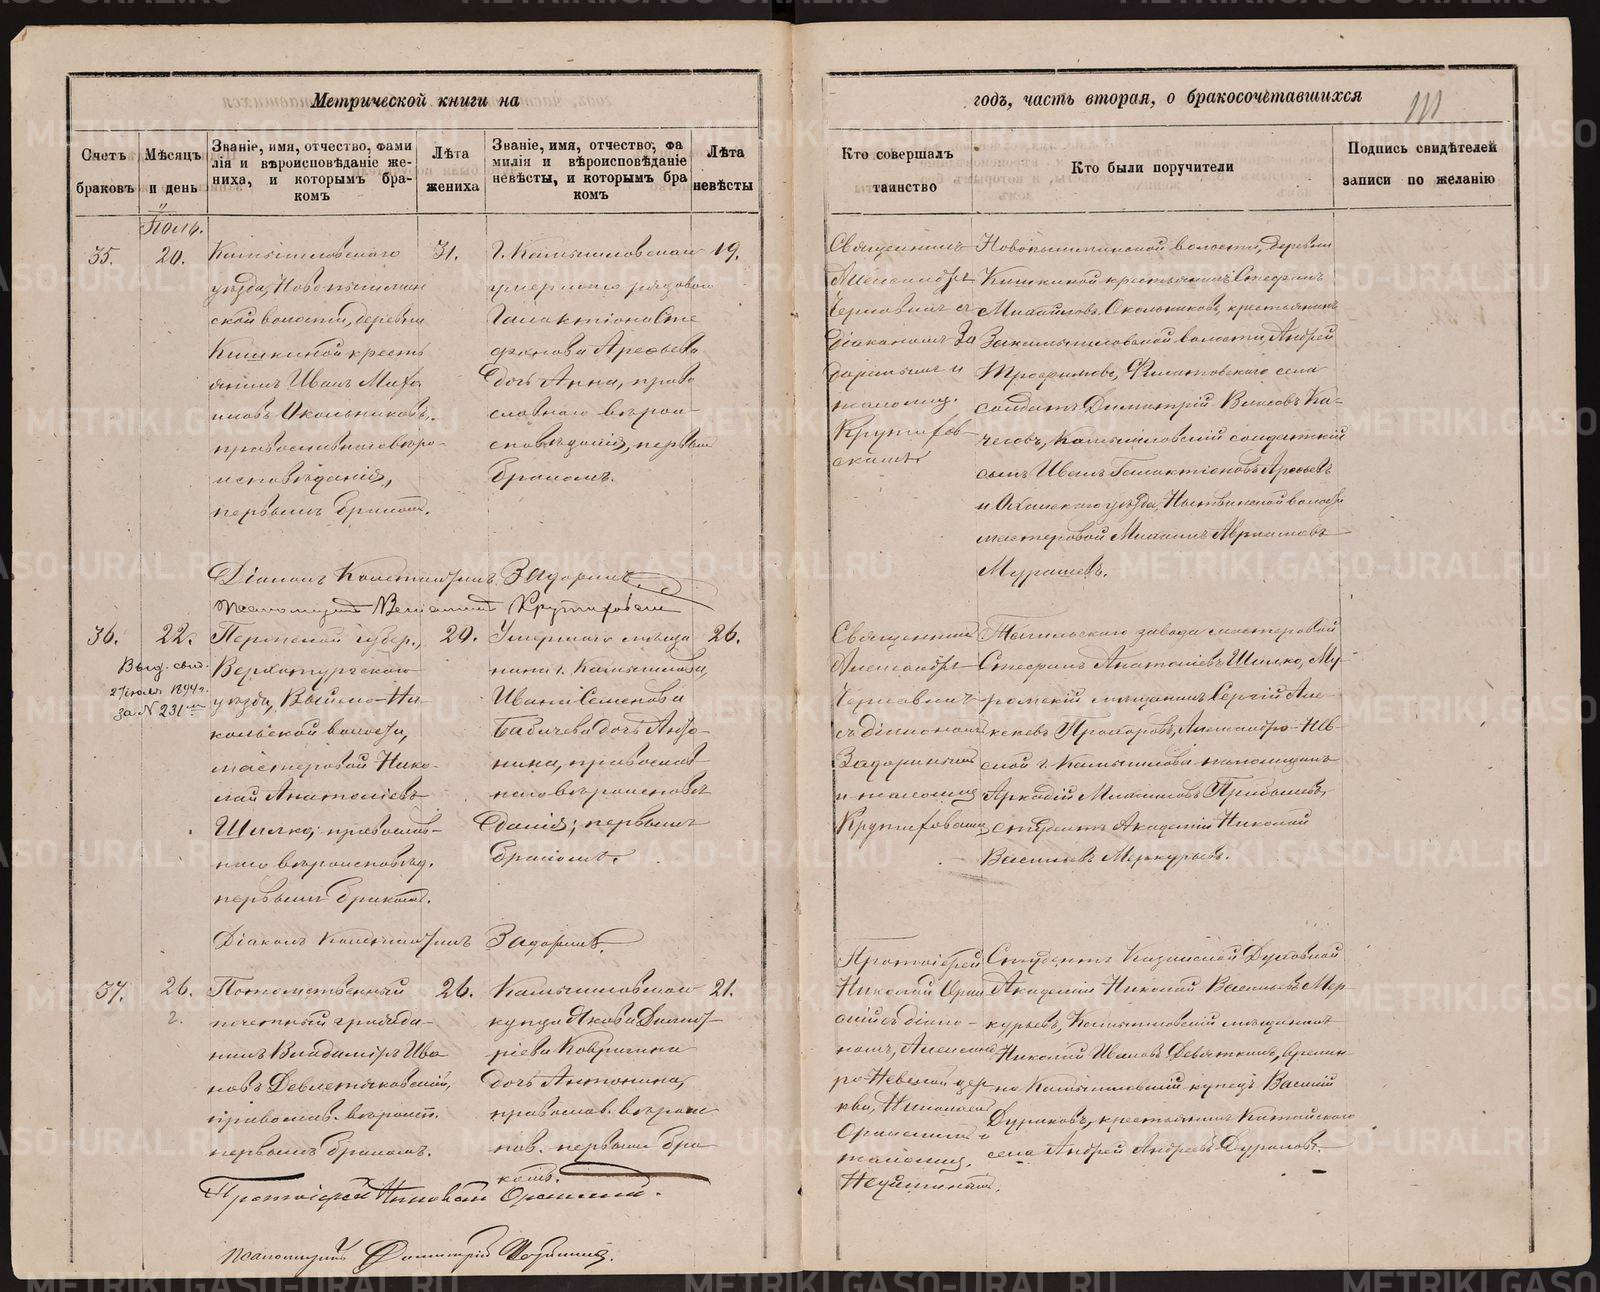 Метрической книги на
Счетъ браковъ
Мѣсяцъ и день
Званіе, имя, отчество, фами
лія и вѣроисповѣданіе же-
ниха, и которымъ бра-
комъ
Лѣта жениха
Званіе, имя, отчество, фа
милія и вѣроисповѣданіе
невѣсты, и которымъ бра
комъ
Лѣта невѣсты
Іюль.
35.
20.
Камышловскаго
уѣзда, Ново-пышмин
ской волости, деревни
Кишкиной кресть
янинъ Иванъ Миха
иловъ Окольниковъ,
православнаго вѣро-
исповѣданія,
первымъ бракомъ.
31.
г. Камышлова
умершаго рядового
Галактіона Сте
фанова Арефьева
дочь Анна, право
славнаго вѣрои-
сповѣданія, первымъ
бракомъ.
19.
Діаконъ Константинъ Задоринъ.
Псаломщикъ Веніаминъ Крутиховскій
36.
22.
Выд. свид.
27 іюля 1894 г.
за № 231
Пермской губер.,
Верхотурскаго
уѣзда, Выйско-Ни-
кольской волости,
мастеровой Нико-
лай Анатоліевъ
Шилко, православ-
наго вѣроисповѣд.
первымъ бракомъ.
20.
Умершаго мѣща
нина г. Камышлова,
Ивана Семенова
Бабичева дочь Анто-
нина, православ
наго вѣроисповѣ
данія, первымъ
бракомъ.
26.
Діаконъ Константинъ Задоринъ.
37.
26.
Потомственный
почетный гражда-
нинъ Владиміръ Ива
новъ Девлетьяковскій,
православ. вѣроисп.
первымъ бракомъ.
26.
Камышловскаго
купца Якова Димит
ріева Ковригина
дочь Антонина,
православ. вѣроис
пов. первымъ бра
комъ.
21.
Протоіерей Николай
Псаломщикъ Димитрій
годъ, часть вторая, о бракосочетавшихся
111
Кто совершалъ таинство
Кто были поручители
Подпись свидѣтелей
записи по желанію
Священникъ
Александръ
Черновинъ съ
Діакономъ За
доринымъ и
псаломщ.
Крутихов
скимъ.
Новопышминской волости, деревни
Кишкиной крестьянинъ Стефанъ
Михайловъ Окольниковъ, крестьянинъ
Закамышловской волости Андрей
Трофимовъ, Филатовскаго села
солдатъ Димитрій Власовъ Ка-
чесовъ, Камышловскій солдатскій
сынъ Иванъ Галактіоновъ Арефьевъ
и Оханскаго уѣзда, Нытвинской волости
мастеровой Михаилъ Авраамовъ
Мурашевъ.
Священникъ
Александръ
Черновинъ
съ діакономъ
Задоринымъ
и псаломщ
Крутиховскимъ
Тагильскаго завода мастеровой
Стефанъ Анатоліевъ Шилко, Му-
ромскій мѣщанинъ Сергій Але-
ксѣевъ Прохоровъ, Александро-Нев-
ской г. Камышлова псаломщикъ
Аркадій Михайловъ Прибылевъ,
студентъ Академіи Николай
Васильевъ Меркурьевъ.
Протоіерей
Николай
съ діако-
номъ, Александ
ро-Невской цер
кви, Николаемъ
и
псаломщ.
Студентъ Казанской Духовной
Академіи Николай Васильевъ Мер
курьевъ, Камышловскій мѣщанинъ
Николай Ивановъ Девяткинъ, времен-
но Камышловскій купецъ Василій
Дураковъ, крестьянинъ Катайскаго
села Андрей Андреевъ Дураковъ.